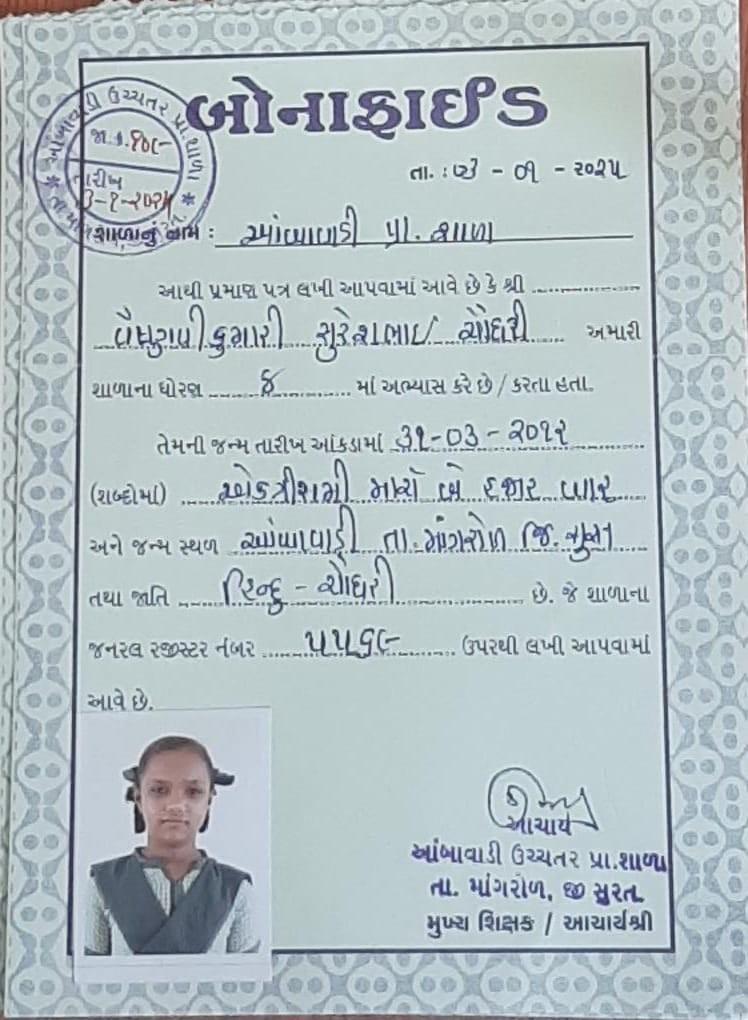 આંબાવાડી ઉચ્ચતર પ્રા.શાળા
જા.ક્ર.
તારીખ
બોનાફાઈડ
તા. : - ૦૧ - ૨૦૨૫
શાળાનું નામ : આંબાવાડી પ્રા. શાળા
આથી પ્રમાણ પત્ર લખી આપવામાં આવે છે કે શ્રી
વૈષ્ણવીકુમારી સુરેશભાઇ ચૌધરી અમારી
શાળાના ધોરણ માં અભ્યાસ કરે છે / કરતા હતા.
તેમની જન્મ તારીખ આંકડામાં ૩૧-૦૩-૨૦૧૨
(શબ્દોમાં) એકત્રીસમી માર્ચ બે હજાર બાર
અને જન્મ સ્થળ આંબાવાડી તા. માંગરોળ જિ. સુરત
તથા જાતિ હિન્દુ - ચૌધરી છે. જે શાળાના
જનરલ રજીસ્ટર નંબર ૫૫૬૯ ઉપરથી લખી આપવામાં
આવે છે.
આચાર્ય
આંબાવાડી ઉચ્ચતર પ્રા.શાળા
તા. માંગરોળ, જી સુરત.
મુખ્ય શિક્ષક / આચાર્યશ્રી